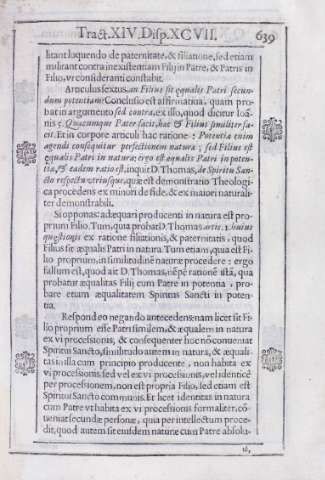 Tract. XIV. Disp. XCVII. 639
litant loquendo de paternitate, & filiatione, sed etiam
militant contra inexistentiam Filij in Patre, & Patris in
Filio, vt consideranti constabit.
Articulus sextus, an Filius sit equalis Patri secun-
dum potentiam? Conclusio est affirmatiua, quam pro-
bat in argumento sed contra, ex illo, quod dicitur Ioã-
nis 5. Quæcumque Pater facit, hæc & Filius similiter fa-
cit. Et in corpore articuli hac ratione: Potentia enim
agendi consequitur perfectionem naturæ; sed Filius est
equalis Patri in natura: ergo est equalis Patri in poten-
tia, & eadem ratio est, inquit D. Thomas, de Spiritu San-
cto respectu vtriusque, quæ est demonstratio Theologi-
ca procedens ex minori de fide, & ex maiori naturali-
ter demonstrabili.
Si opponas: adæquari producenti in natura est pro-
prium Filio. Tum, quia probat D. Thomas artic. huius
quæstionis ex ratione filiationis, & paternitatis, quod
Filius sit æqualis Patri in natura. Tum etiam, quia est Fi-
lio proprium, in similitudinẽ naturæ procedere: ergo
falsum est, quod ait D. Thomas, nẽpè rationẽ istã, qua
probatur æqualitas Filij cum Patre in potentia, pro-
bare etiam æqualitatem Spiritus Sancti in poten-
tia.
Respondeo negando antecedens: nam licet sit Fi-
lio proprium esse Patri similem, & æqualem in natura
ex vi processionis, & consequenter hoc nõ conueniat
Spiritui Sancto, similitudo autem in natura, & æquali-
tas in illa cum principio producente, non habita ex
vi processionis, sed vel ex vi processionis, vel identicè
per processionem, non est propria Filio, sed etiam est
Spiritui Sancto communis. Et licet identitas in natura
cum Patre vt habita ex vi processionis formaliter, cõ-
ueniat secundæ personæ, quia per intellectum proce-
dit, quod autem sit eiusdem naturæ cum Patre absolu-